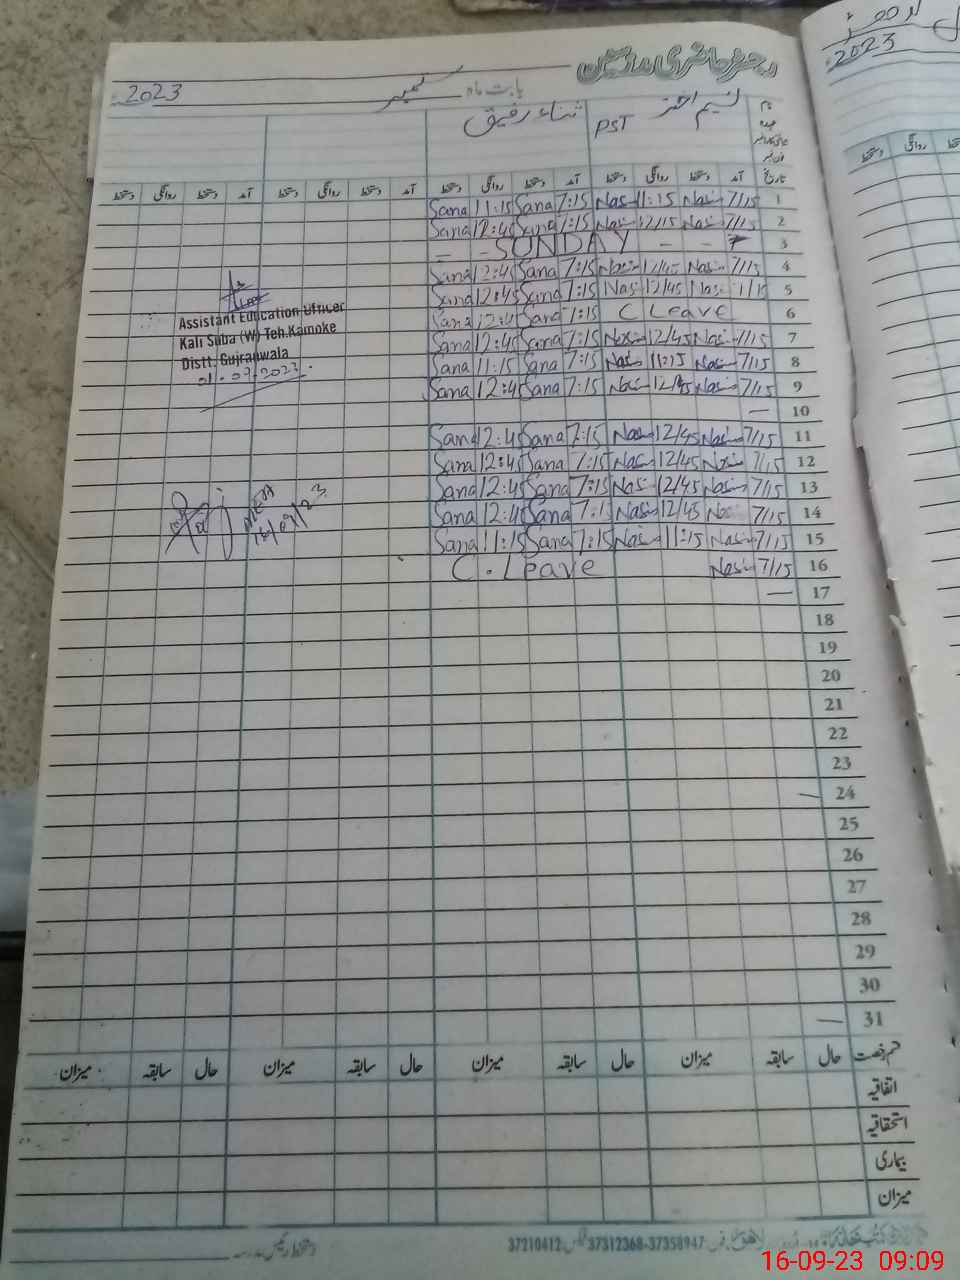 رجسٹر حاضری مدرسین
بابت ماہ ستمبر 2023
نام نسیم اختر ثناء رفیق
عہدہ PST
تاریخ آمد دستخط روانگی دستخط آمد دستخط روانگی دستخط آمد دستخط روانگی دستخط آمد دستخط روانگی دستخط
Sana 11:15 Sana 7:15 Nas 11:15 Nas 7/15 1
Sana 12:45 Sana 7:15 Nas 12/15 Nas 7/15 2
- - SUNDAY - - 3
Sana 12:45 Sana 7:15 Nas 12/45 Nas 7/15 4
Sana 12:45 Sana 7:15 Nas 12/45 Nas 7/15 5
Sana 12:4 Sana 7:15 C Leave 6
Sana 12:45 Sana 7:15 Nas 12/45 Nas 7/15 7
Sana 11:15 Sana 7:15 Nas 11:15 Nas 7/15 8
Sana 12:45 Sana 7:15 Nas 12/45 Nas 7/15 9
— 10
Sana 12:45 Sana 7:15 Nas 12/45 Nas 7/15 11
Sana 12:45 Sana 7:15 Nas 12/45 Nas 7/15 12
Sana 12:45 Sana 7:15 Nas 12/45 Nas 7/15 13
Sana 12:45 Sana 7:15 Nas 12/45 Nas 7/15 14
Sana 11:15 Sana 7:15 Nas 11:15 Nas 7/15 15
C. Leave Nas 7/15 16
— 17
18
19
20
21
22
23
— 24
25
26
27
28
29
30
— 31
Assistant Education Officer
Kali Suba (W) Teh.Kamoke
Distt. Gujranwala
01.09.2023.
MEA
16/09/23
قسم رخصت حال سابقہ میزان حال سابقہ میزان حال سابقہ میزان حال سابقہ میزان
اتفاقیہ
استحقاقیہ
بیماری
میزان
37210412 37312368-37358947
دستخط رئیس مدرسہ
2023
16-09-23 09:09